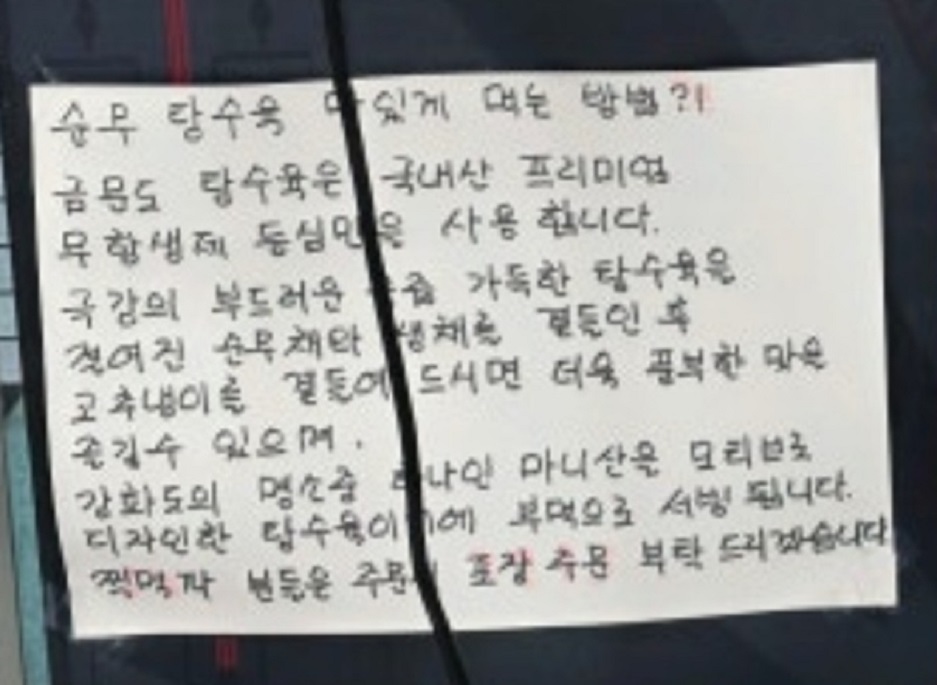 순무 탕수육 맛있게 먹는 방법?!
금문도 탕수육은 국내산 프리미엄
무항생제 등심만을 사용 합니다.
부드러운 육즙 가득한 탕수육을
순무채와 생채를 곁들인 후
고추냉이를 곁들여 드시면 더욱 풍부한 맛을
즐길수 있으며.
강화도의 명소중 하나인 마니산을 모티브로
디자인한 탕수육이기에 부먹으로 서빙 됩니다.
찍먹자 분들은 포장 주문 부탁 드리겠습니다